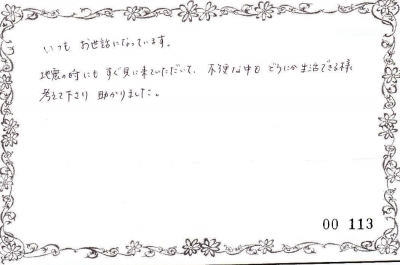 いつも お世話になっています。
地震の時にも すぐ見に来ていただいて、不便な中も どうにか生活できる様
考えて下さり 助かりました。
00 113